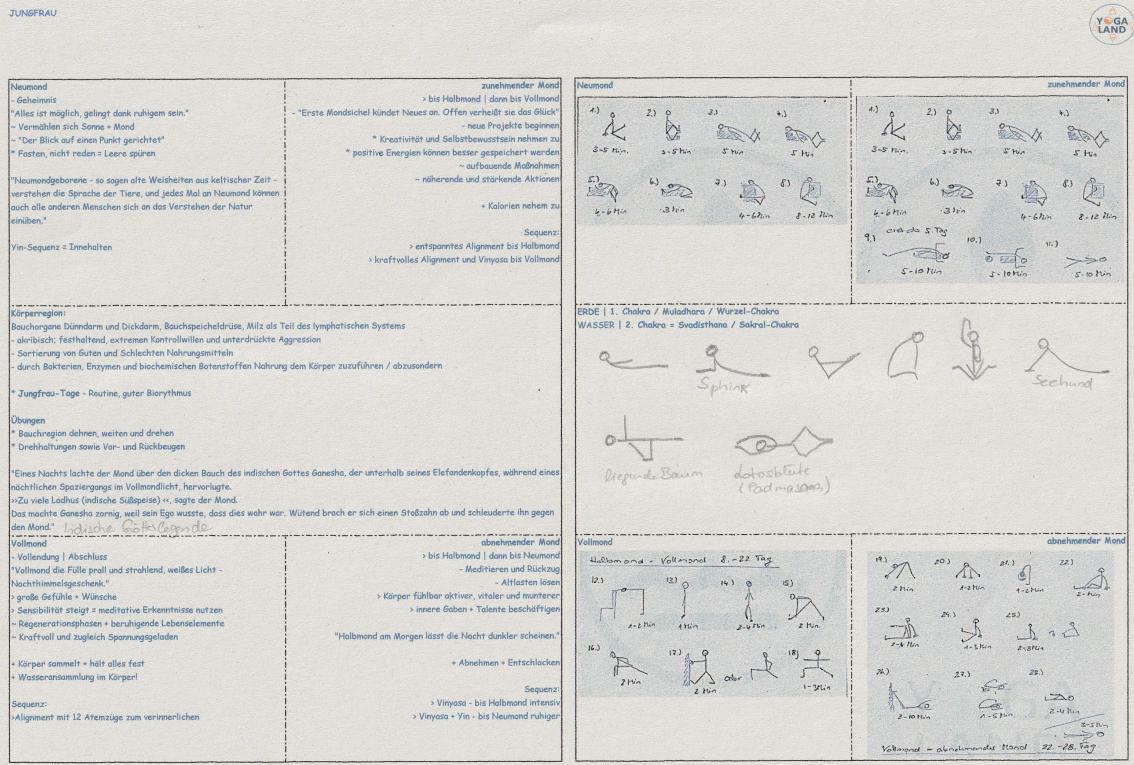 JUNGFRAU
YOGA
LAND
Neumond
- Geheimnis
"Alles ist möglich, gelingt dank ruhigem sein."
~ Vermählen sich Sonne + Mond
~ "Der Blick auf einen Punkt gerichtet"
* Fasten, nicht reden = Leere spüren
"Neumondgeborene - so sagen alte Weisheiten aus keltischer Zeit -
verstehen die Sprache der Tiere, und jedes Mal an Neumond können
auch alle anderen Menschen sich an das Verstehen der Natur
einüben."
Yin-Sequenz = Innehalten
zunehmender Mond
> bis Halbmond | dann bis Vollmond
- "Erste Mondsichel kündet Neues an. Offen verheißt sie das Glück"
- neue Projekte beginnen
* Kreativität und Selbstbewusstsein nehmen zu
* positive Energien können besser gespeichert werden
~ aufbauende Maßnahmen
~ näherende und stärkende Aktionen
+ Kalorien nehem zu
Sequenz:
> entspanntes Alignment bis Halbmond
> kraftvolles Alignment und Vinyasa bis Vollmond
Körperregion:
Bauchorgane Dünndarm und Dickdarm, Bauchspeicheldrüse, Milz als Teil des lymphatischen Systems
- akribisch; festhaltend, extremen Kontrollwillen und unterdrückte Aggression
- Sortierung von Guten und Schlechten Nahrungsmitteln
- durch Bakterien, Enzymen und biochemischen Botenstoffen Nahrung dem Körper zuzuführen / abzusondern
* Jungfrau-Tage - Routine, guter Biorythmus
Übungen
* Bauchregion dehnen, weiten und drehen
* Drehhaltungen sowie Vor- und Rückbeugen
"Eines Nachts lachte der Mond über den dicken Bauch des indischen Gottes Ganesha, der unterhalb seines Elefandenkopfes, während eines
nächtlichen Spaziergangs im Vollmondlicht, hervorlugte.
>>Zu viele Ladhus (indische Süßspeise) <<, sagte der Mond.
Das machte Ganesha zornig, weil sein Ego wusste, dass dies wahr war. Wütend brach er sich einen Stoßzahn ab und schleuderte ihn gegen
den Mond." Indische Götterlegende
Vollmond
- Vollendung | Abschluss
"Vollmond die Fülle prall und strahlend, weißes Licht -
Nachthimmelsgeschenk."
> große Gefühle + Wünsche
> Sensibilität steigt = meditative Erkenntnisse nutzen
~ Regenerationsphasen + beruhigende Lebenselemente
~ Kraftvoll und zugleich Spannungsgeladen
+ Körper sammelt + hält alles fest
+ Wasseransammlung im Körper!
Sequenz:
>Alignment mit 12 Atemzüge zum verinnerlichen
abnehmender Mond
> bis Halbmond | dann bis Neumond
- Meditieren und Rückzug
- Altlasten lösen
> Körper fühlbar aktiver, vitaler und munterer
> innere Gaben + Talente beschäftigen
"Halbmond am Morgen lässt die Nacht dunkler scheinen."
+ Abnehmen + Entschlacken
Sequenz:
> Vinyasa - bis Halbmond intensiv
> Vinyasa + Yin - bis Neumond ruhiger
Neumond
1.) 2.) 3.) 4.)
3-5 Min. 3-5 Min 5 Min 5 Min
5.) 6.) 7.) 8.)
4-6 Min 3 Min 4-6 Min 8-12 Min
zunehmender Mond
1.) 2.) 3.) 4.)
3-5 Min. 3-5 Min 5 Min 5 Min
5.) 6.) 7.) 8.)
4-6 Min 3 Min 4-6 Min 8-12 Min
5. Tag
9.) 10.) 11.)
5-10 Min 5-10 Min 5-10 Min
ERDE | 1. Chakra / Muladhara / Wurzel-Chakra
WASSER | 2. Chakra = Svadisthana / Sakral-Chakra
Sphinx
Seehund
liegende Baum
Lotosblüte
(Padmasana)
Vollmond
Halbmond - Vollmond 8.-22. Tag
12.) 13.) 14.) 15.)
1-2 Min 1 Min 2-4 Min 2 Min
16.) 17.) 18.)
oder
2 Min 2 Min 1-3 Min
abnehmender Mond
19.) 20.) 21.) 22.)
2 Min 1-2 Min 1-2 Min 2-4 Min
23.) 24.) 25.)
2-4 Min 1-3 Min 2-3 Min
26.) 27.) 28.)
2-10 Min 1-5 Min 2-4 Min
3-5 Min
Vollmond - abnehmender Mond 22.-28. Tag